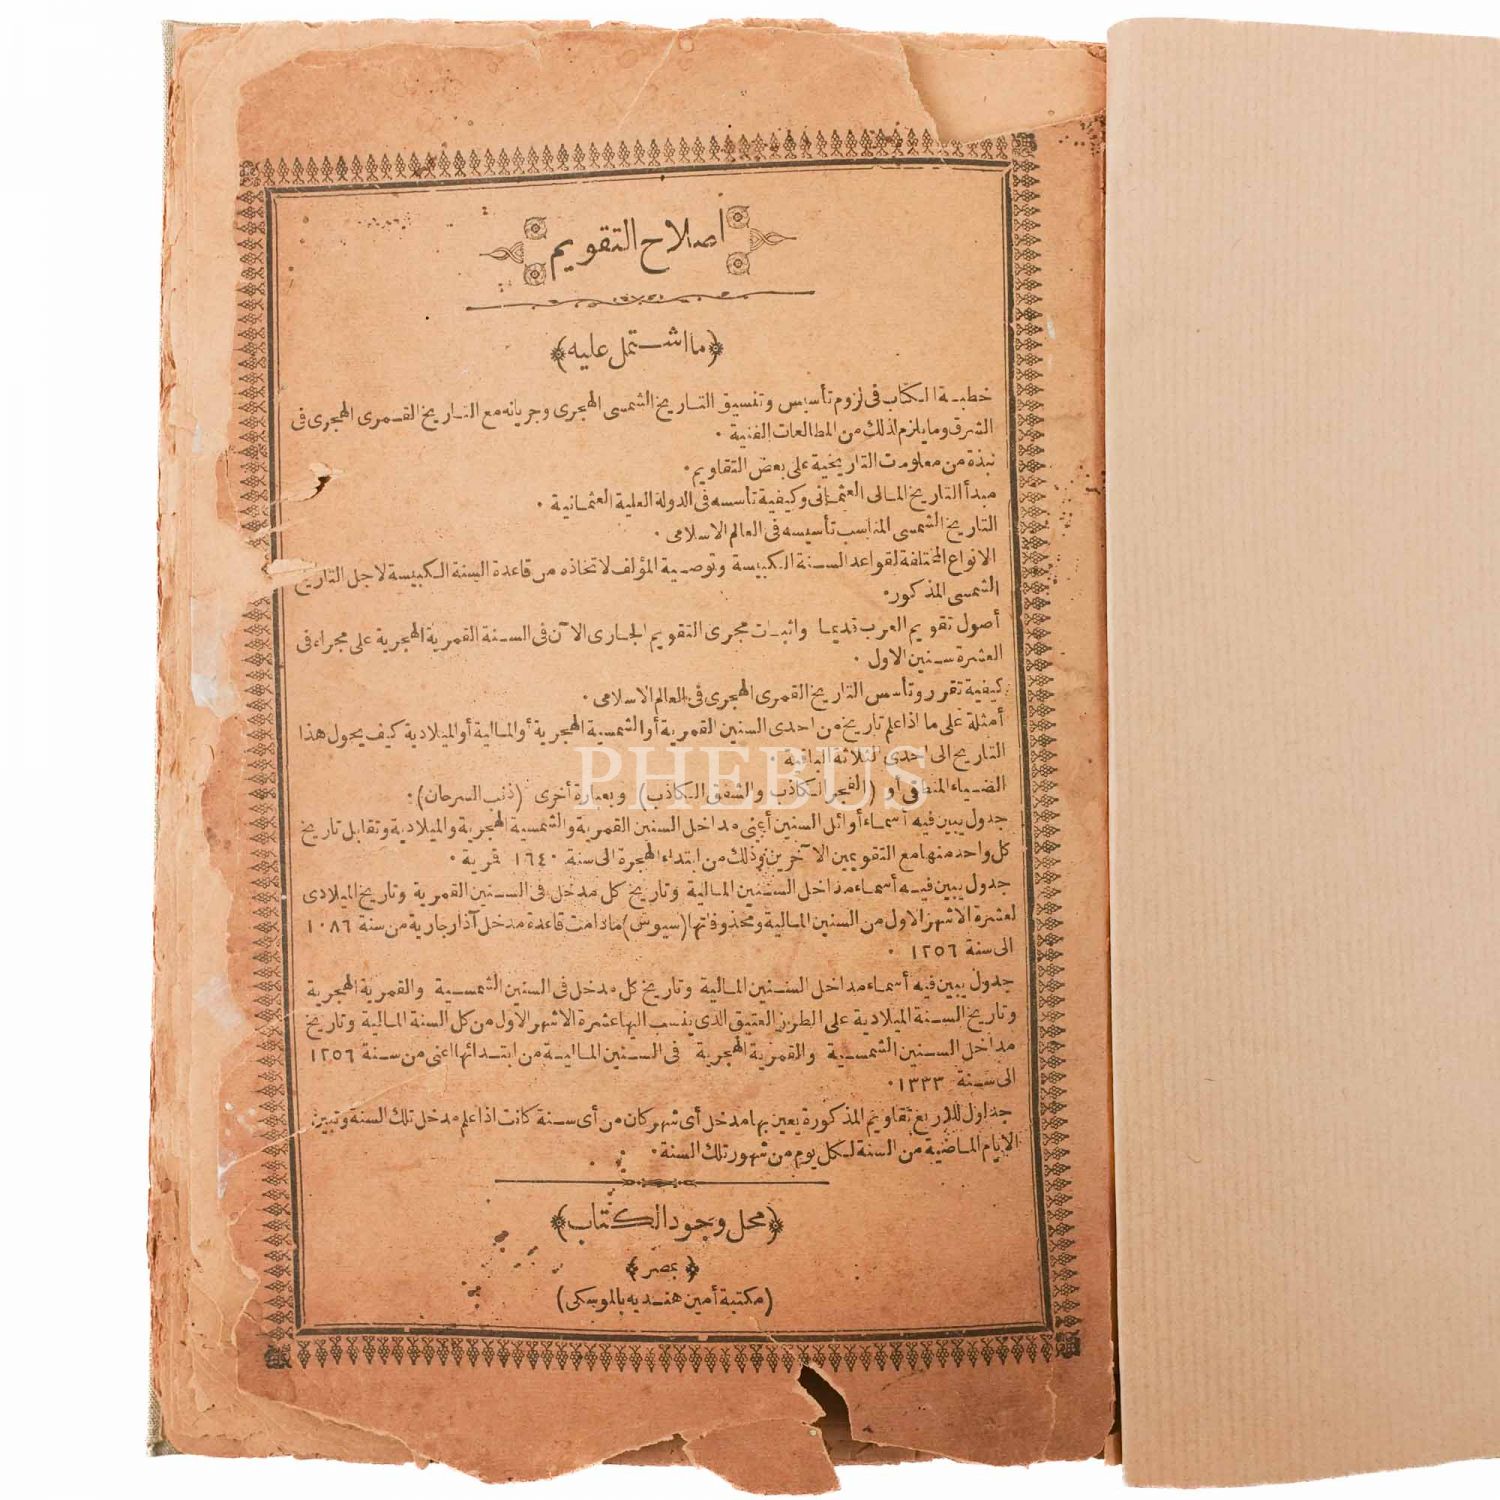 اصلاح التقويم
﴿ما اشتمل عليه﴾
خطبة الكتاب فى لزوم تأسيس وتنسيق التاريخ الشمسى الهجرى وجريانه مع التاريخ القمرى الهجرى فى
الشرق وما يلزم لذلك من المطالعات الفنية ٠
نبذة من معلومت التاريخية على بعض التقاويم ٠
مبدأ التاريخ المالى العثمانى وكيفية تأسسه فى الدولة العلية العثمانية ٠
التاريخ الشمسى المناسب تأسيسه فى العالم الاسلامى ٠
الانواع المختلفة لقواعد السنة الكبيسة وتوصية المؤلف لاتخاذه من قاعدة السنة الكبيسة لاجل التاريخ
الشمسى المذكور ٠
أصول تقويم العرب قديما واثبات مجرى التقويم الجارى الآن فى السنة القمرية الهجرية على مجراه فى
العشرة سنين الاول ٠
كيفية تقرر وتأسس التاريخ القمرى الهجرى فى العالم الاسلامى ٠
أمثلة على ما اذا علم تاريخ من احدى السنين القمرية أو الشمسية الهجرية أو المالية أو الميلادية كيف يحول هذا
التاريخ الى احدى الثلاثة الباقية ٠
الضياء المنطقى أو (الفجر الكاذب والشفق الكاذب) وبعبارة أخرى (ذنب السرحان) ٠
جدول يبين فيه أسماء أوائل السنين أعنى مداخل السنين القمرية والشمسية الهجرية والميلادية وتقابل تاريخ
كل واحد منها مع التقويمين الآخرين وذلك من ابتداء الهجرة الى سنة ١٦٤٠ قمرية ٠
جدول يبين فيه أسماء مداخل السنين المالية وتاريخ كل مدخل فى السنين القمرية وتاريخ الميلادى
لعشرة الاشهر الاول من السنين المالية ومحذوفاتها (سيوش) مادامت قاعدة مدخل آذار جارية من سنة ١٠٨٦
الى سنة ١٢٥٦ ٠
جدول يبين فيه أسماء مداخل السنين المالية وتاريخ كل مدخل فى السنين الشمسية والقمرية الهجرية
وتاريخ السنة الميلادية على الطرز العتيق الذى ينسب اليها عشرة الاشهر الاول من كل السنة المالية وتاريخ
مداخل السنين الشمسية والقمرية الهجرية فى السنين المالية من ابتدائها اعنى من سنة ١٢٥٦
الى سنة ١٣٣٣ ٠
جداول للاربع تقاويم المذكورة يعين بها مدخل أى شهر كان من أى سنة كانت اذا علم مدخل تلك السنة وتبين
الايام الماضية من السنة لكل يوم من شهور تلك السنة ٠
﴿محل وجود الكتاب﴾
﴿بمصر﴾
(مكتبة أمين هندية بالموسكى)
PHEBUS